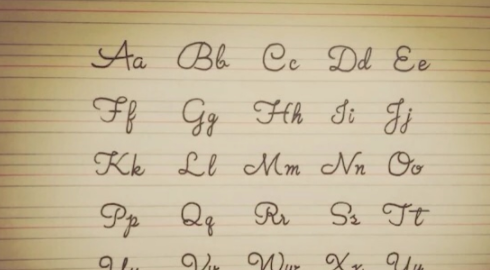 Aa Bb Cc Dd Ee
Ff Gg Hh Ii Jj
Kk Ll Mm Nn Oo
Pp Qq Rr Ss Tt
Uu Vv Ww Xx Yy